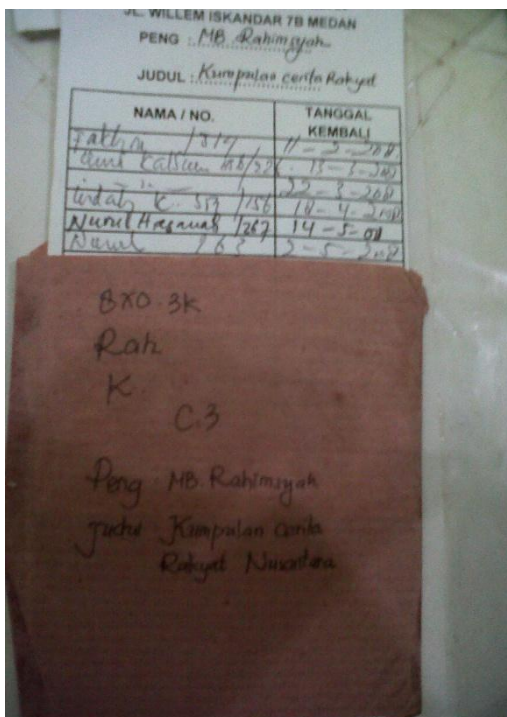 JL. WILLEM ISKANDAR 7B MEDAN
PENG : MB Rahimsyah
JUDUL : Kumpulan cerita Rakyat
NAMA / NO. TANGGAL KEMBALI
11 - 3 - 208
13 - 3 - 208
22 - 3 - 208
Indah K. 553 /156 18 - 4 - 2008
Nurul Hasanah /267 14 - 5 - 08
Nurul 763 2 - 5 - 208
8X0.3K
Rah
K
C.3
Peng : MB. Rahimsyah
Judul : Kumpulan Cerita
Rakyat Nusantara